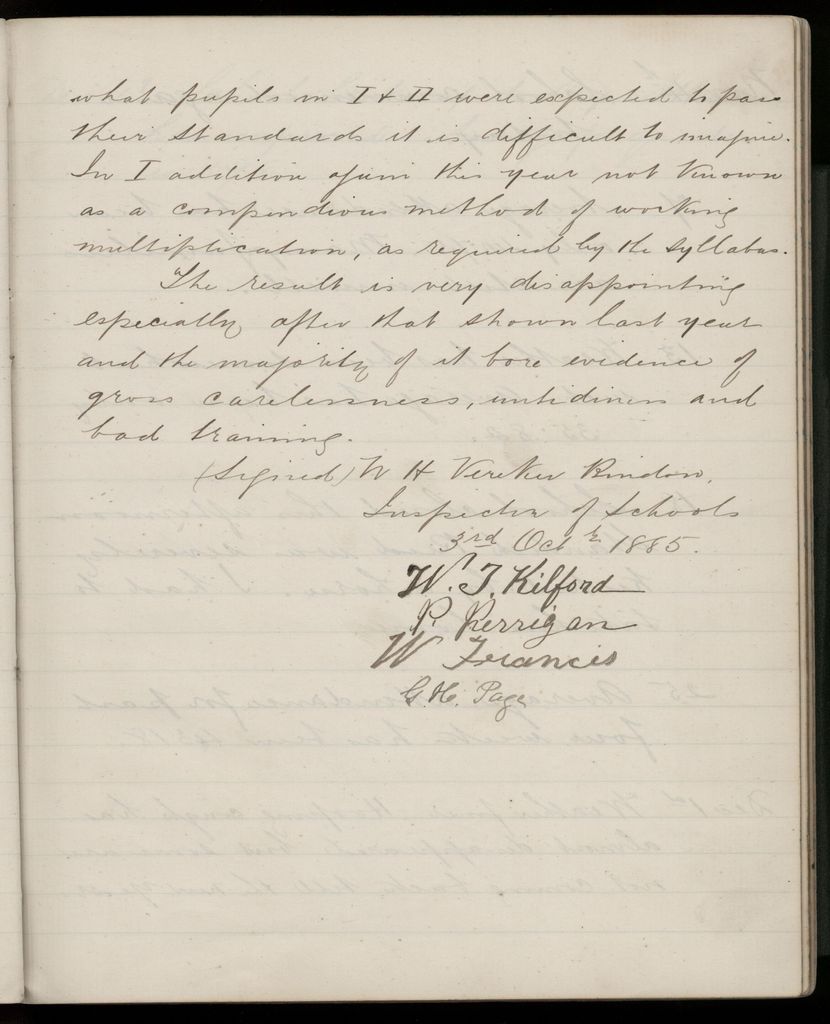 what pupils in I & II were expected to pass
their standards it is difficult to imagine.
In I addition again this year not known
as a compendious method of working
multiplication, as required by the syllabus.
The result is very disappointing
especially after that shown last year
and the majority of it bore evidence of
gross carelessness, untidiness and
bad training.
(Signed) W H Vereker Bindon,
Inspector of Schools
3rd Octr 1885.
W. J. Kilford
P. Kerrigan
W Francis
G. H. Page